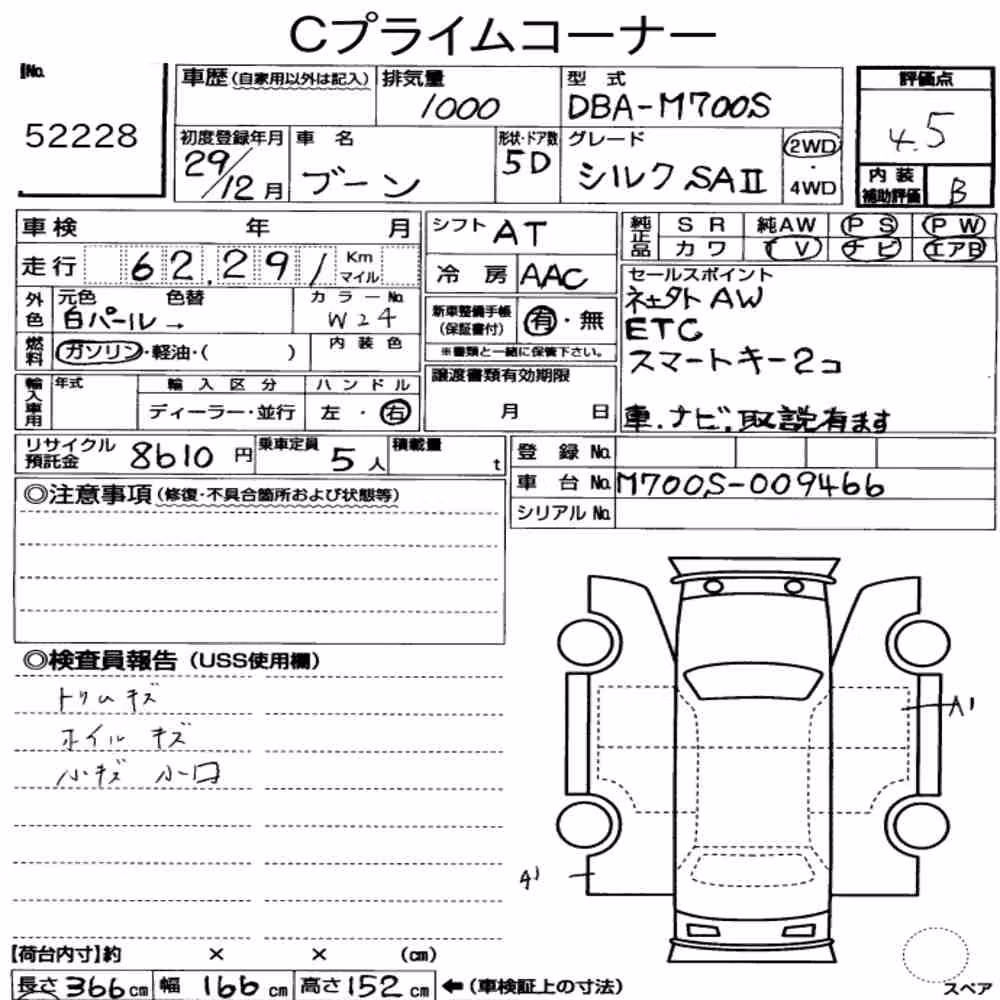 Cプライムコーナー
No.
52228
車歴(自家用以外は記入)
排気量
1000
型 式
DBA-M700S
評価点
4.5
初度登録年月
29/12月
車 名
ブーン
形状・ドア数
5D
グレード
シルク SAⅡ
2WD
・
4WD
内 装
補助評価
B
車検 年 月
シフト AT
純正品
SR 純AW PS PW
カワ TV ナビ エアB
走行 62,291 Km マイル
冷 房 AAC
セールスポイント
外色
元色 色替
白パール→
カラーNo.
W24
新車整備手帳
(保証書付)
有・無
※書類と一緒に保管下さい。
AW
ETC
スマートキー2コ
車.ナビ.取説有ます
燃料
ガソリン・軽油・( )
内装色
輸入車用
年式
輸入区分
ディーラー・並行
ハンドル
左・右
譲渡書類有効期限
月 日
リサイクル
預託金
8610円
乗車定員
5人
積載量
t
登 録 No.
車 台 No. M700S-009466
シリアル No.
◎注意事項(修復・不具合箇所および状態等)
◎検査員報告(USS使用欄)
トリムキズ
ホイルキズ
小キズ 小凹
A1
A1
【荷台内寸】約 × × (cm)
長さ366cm 幅 166cm 高さ152cm ←(車検証上の寸法)
スペア